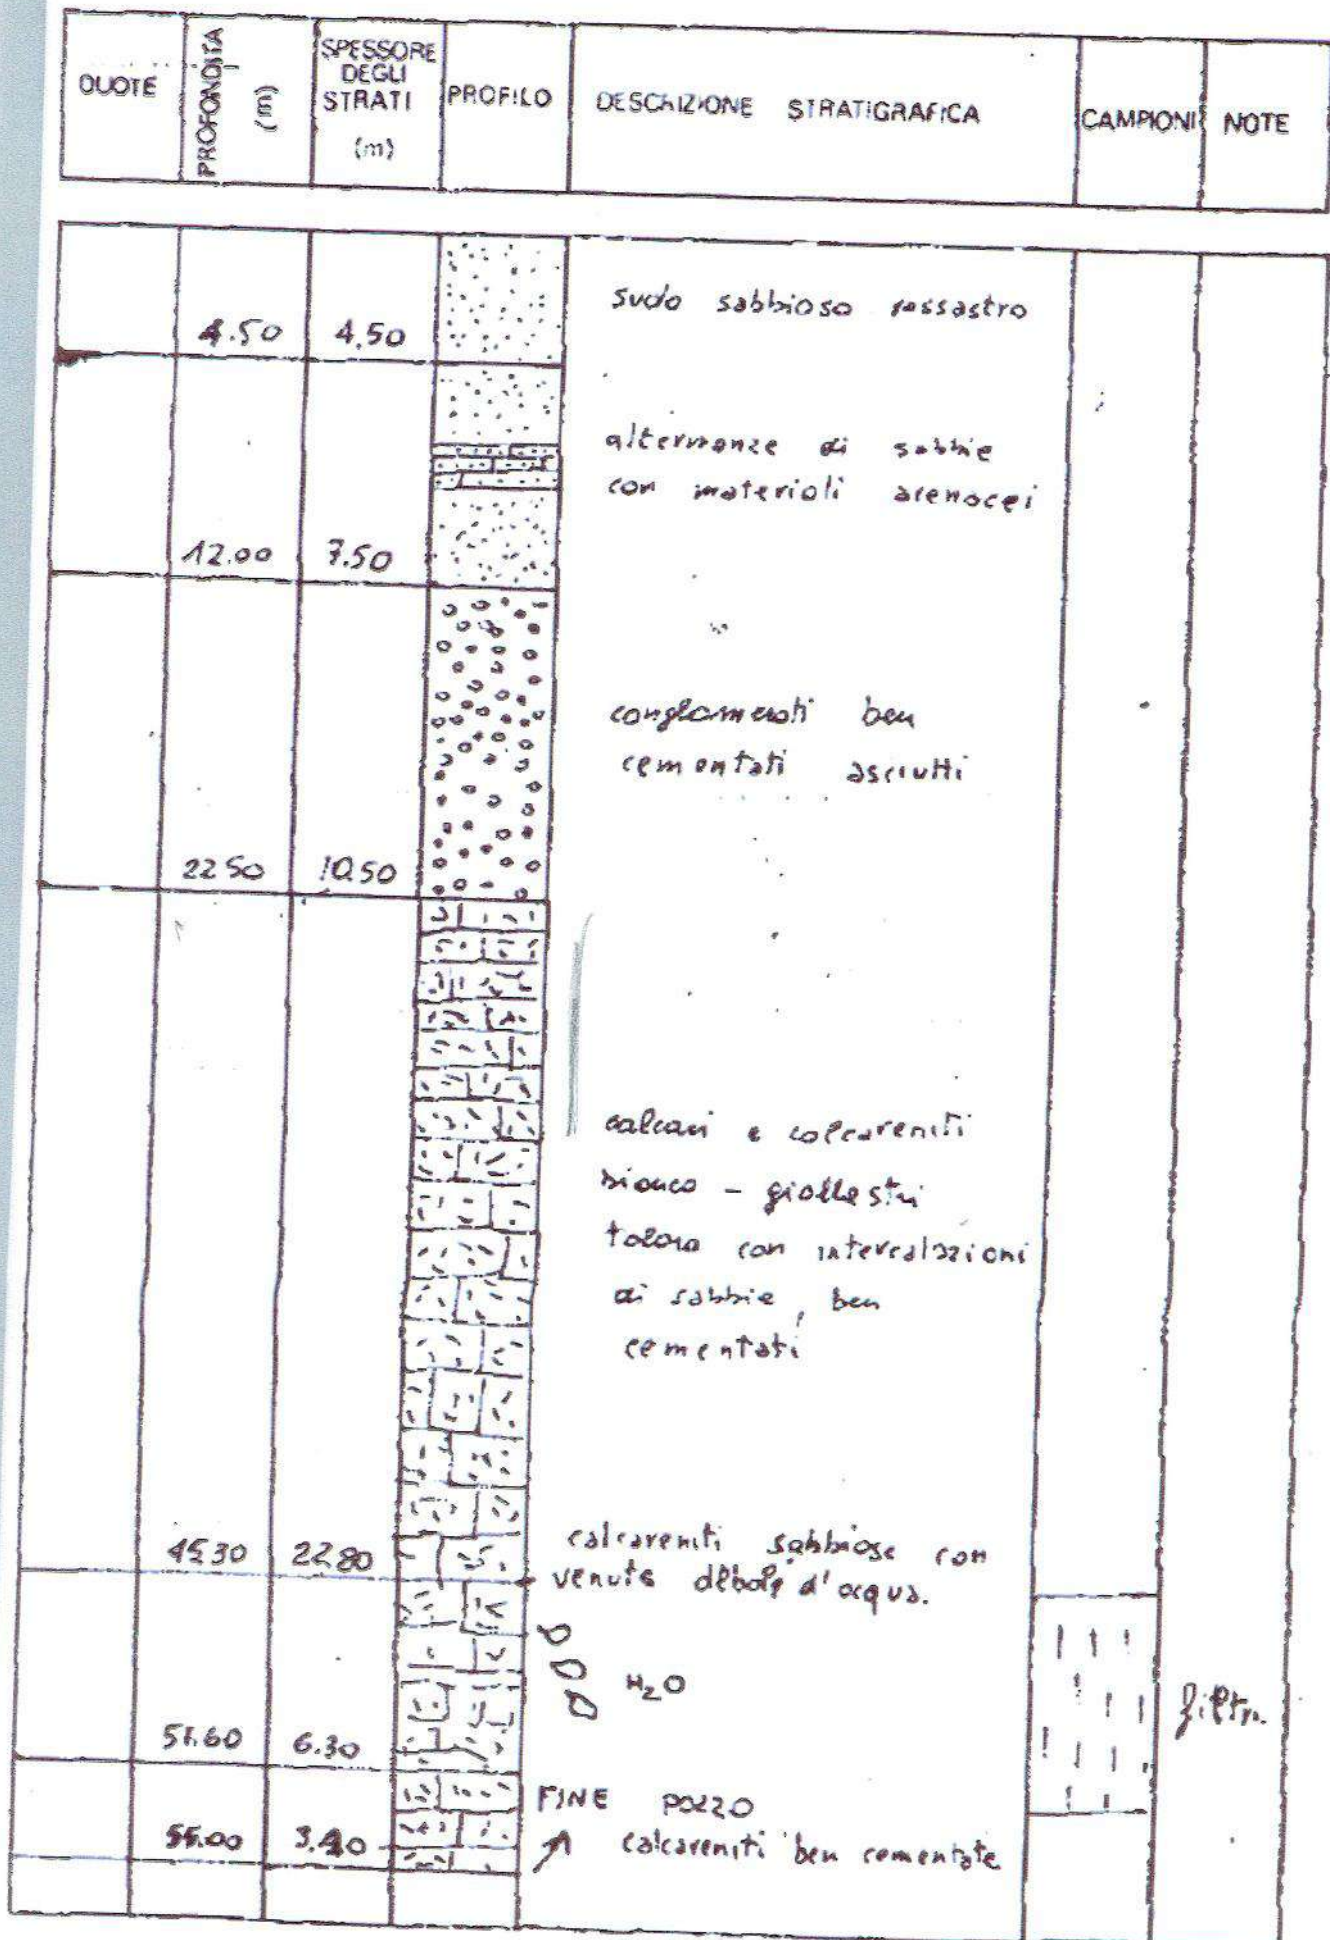 QUOTE
PROFONDITA (m)
SPESSORE
DEGLI
STRATI
(m)
PROFILO
DESCRIZIONE STRATIGRAFICA
CAMPIONI
NOTE
4.50 4.50 suolo sabbioso rossastro
alternanze di sabbie
con materiali arenacei
12.00 7.50
conglomerati ben
cementati asciutti
22.50 10.50
calcari e calcareniti
bianco - giallastri
talora con intercalazioni
di sabbie, ben
cementati
45.30 22.80
calcareniti sabbiose con
venute debole d'acqua.
H2O
filtri
51.60 6.30
FINE POZZO
55.00 3.40 calcareniti ben cementate